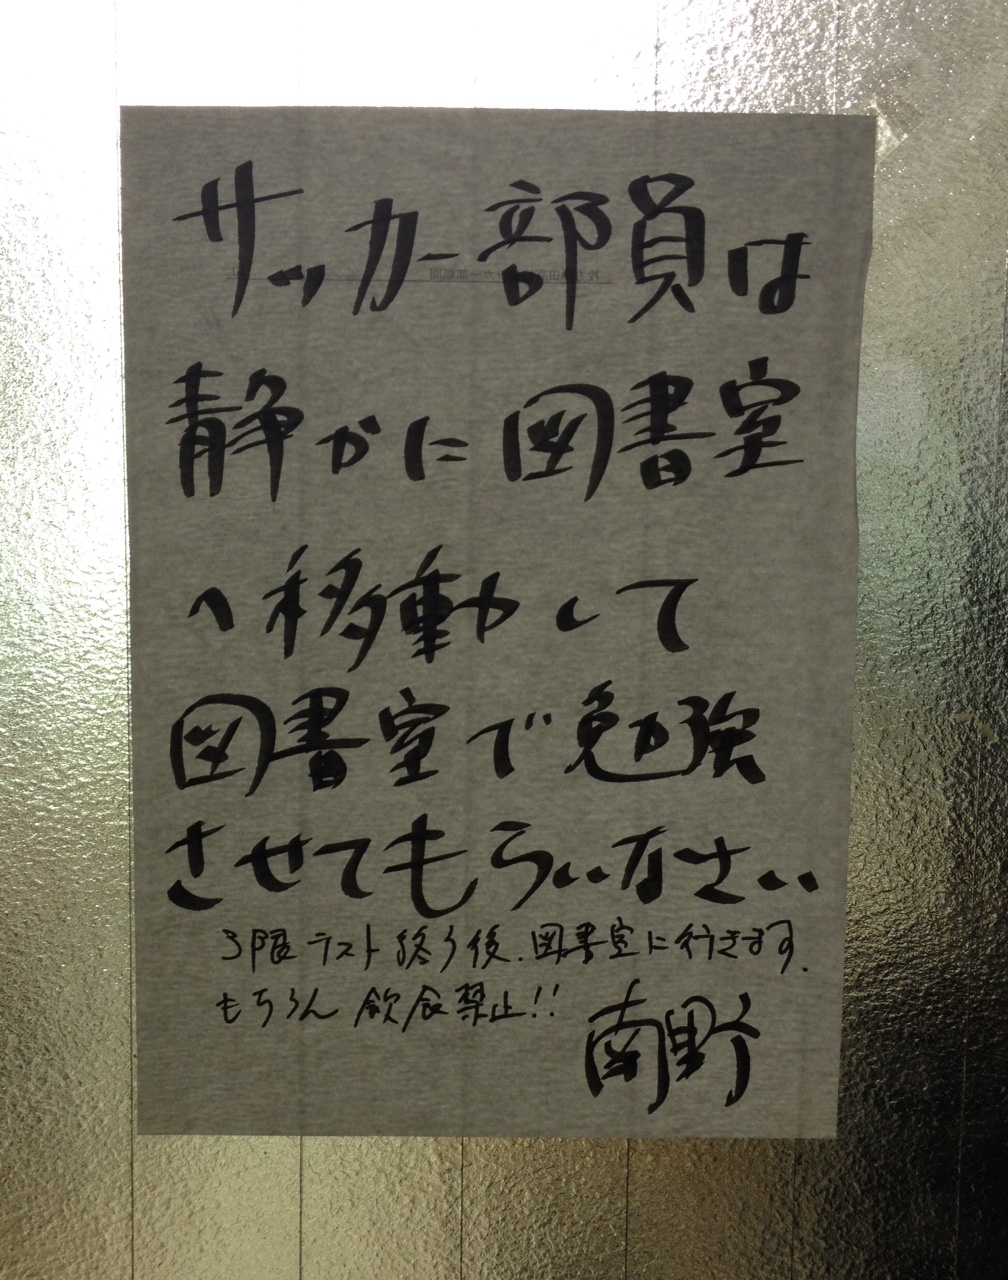 サッカー部員は
静かに図書室
へ移動して
図書室で勉強
させてもらいなさい
3限テスト終了後、図書室に行きます。
もちろん飲食禁止!!
南野